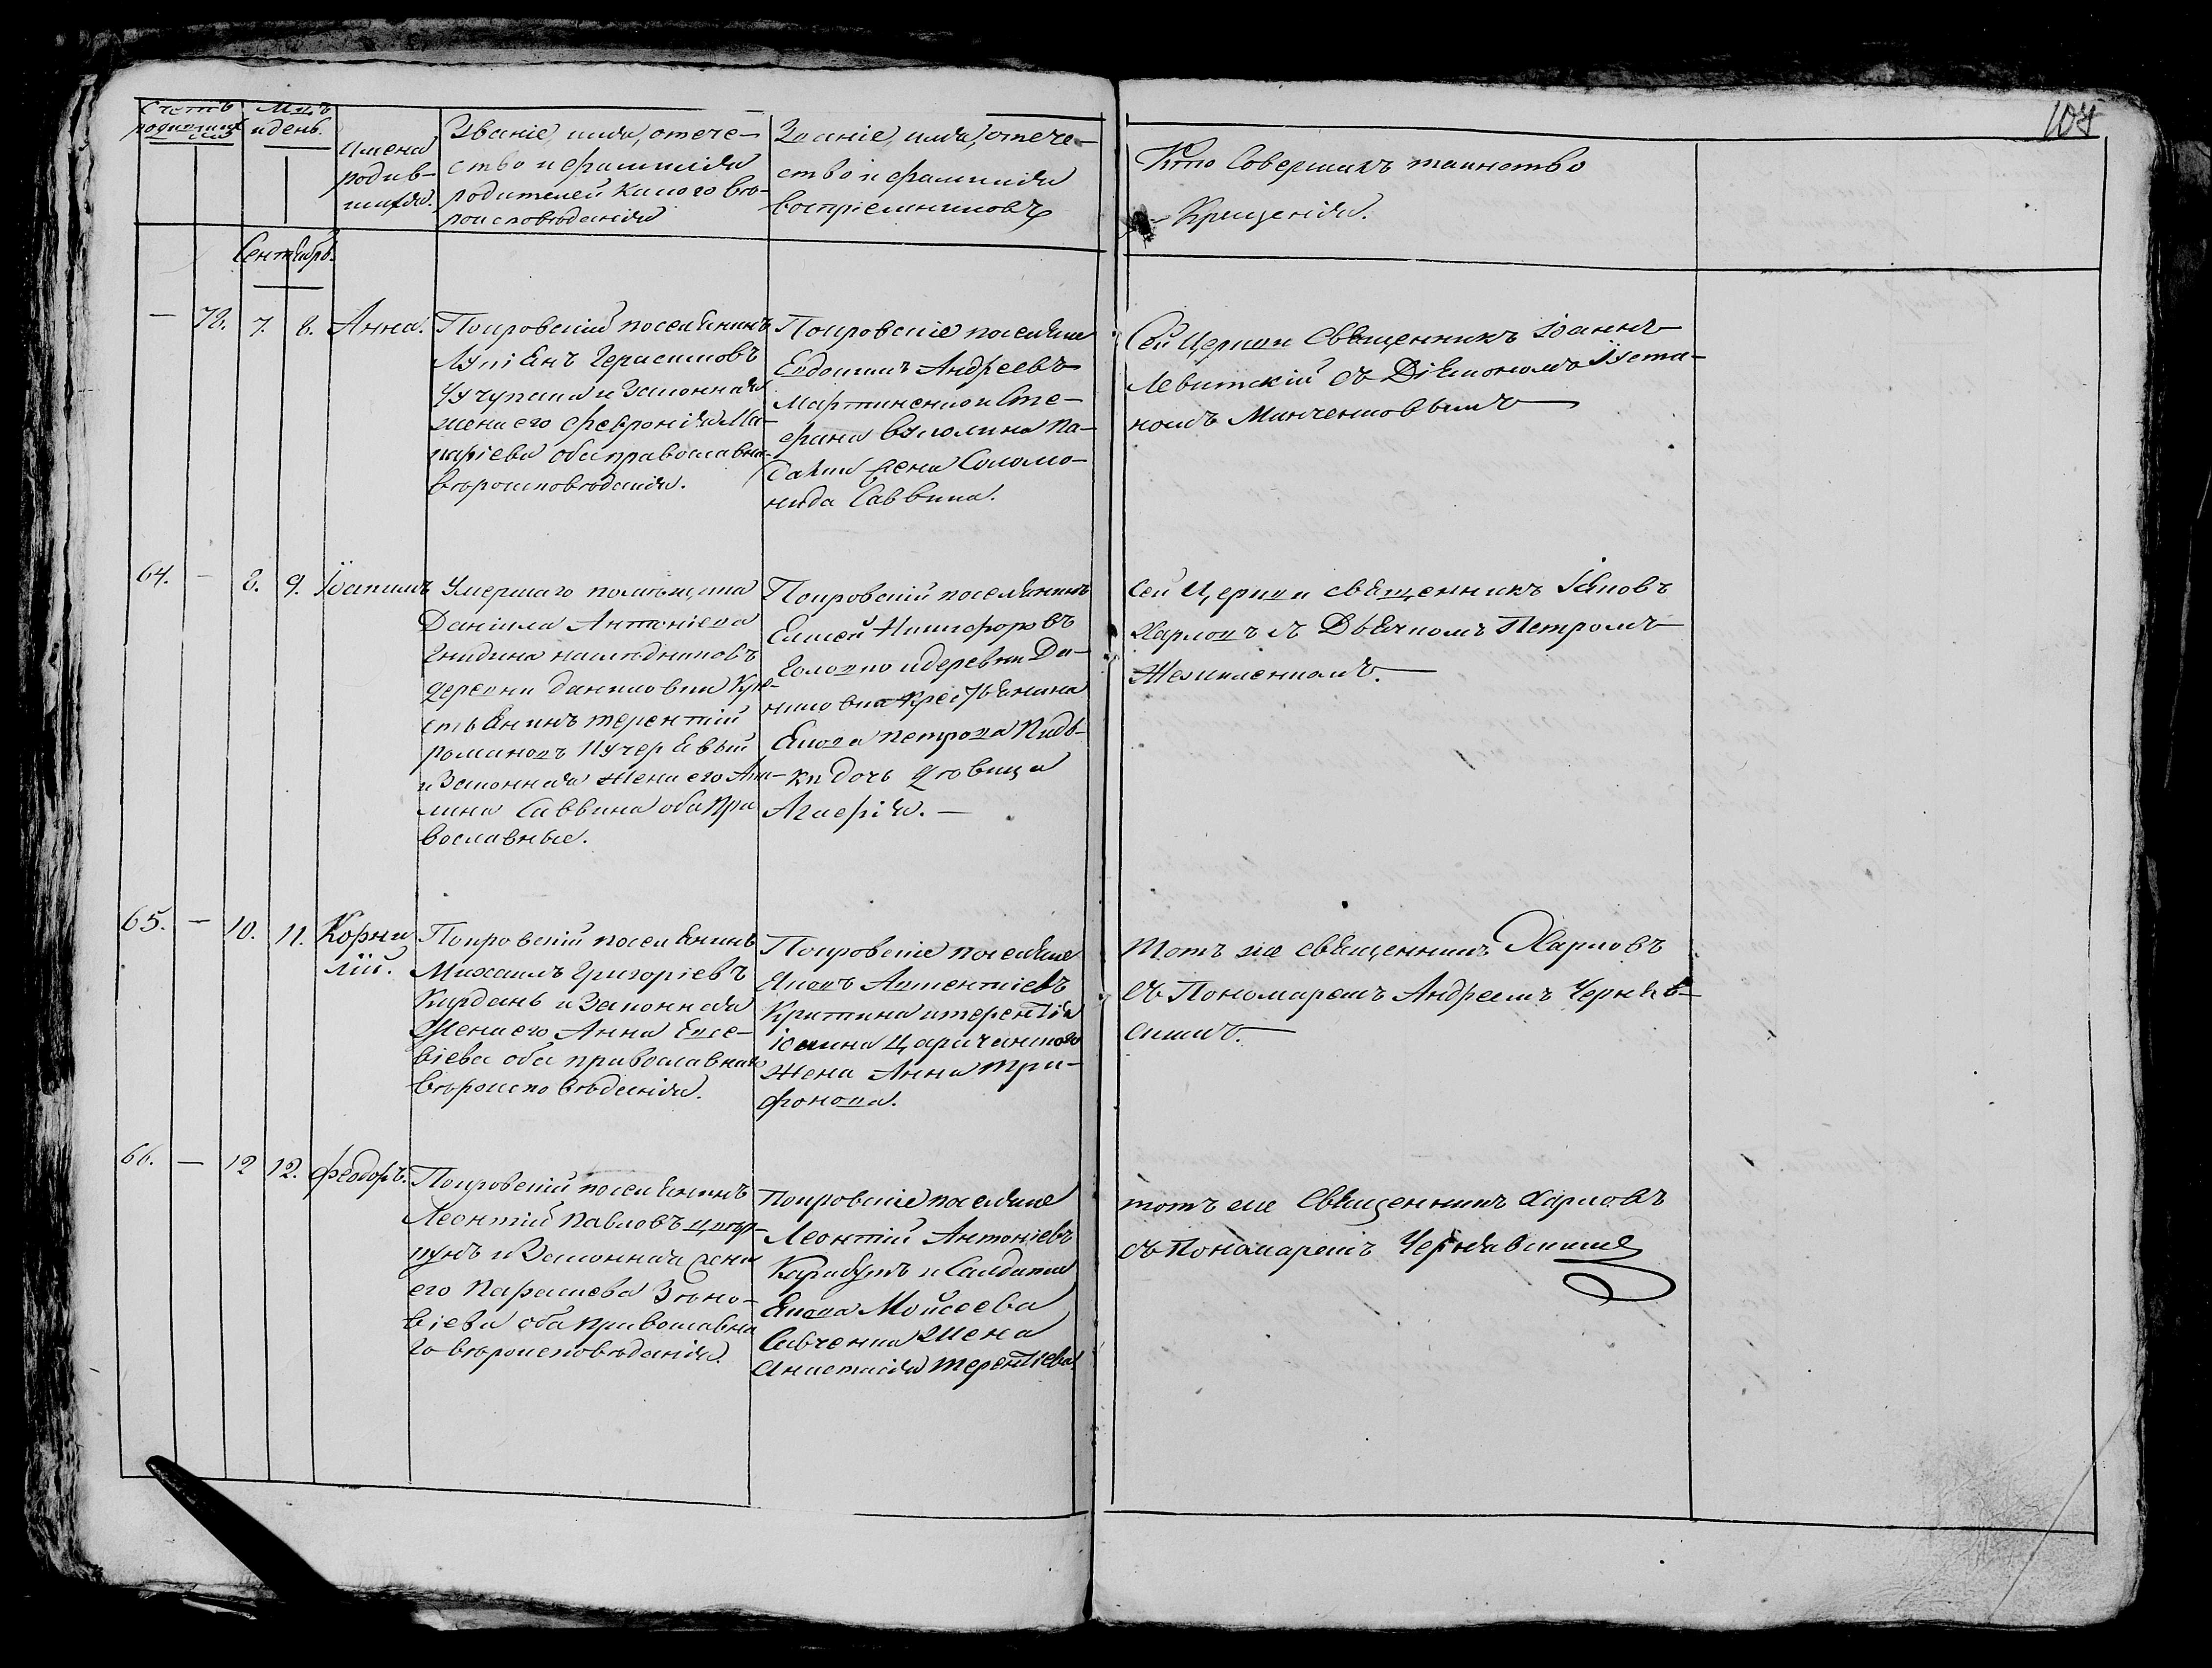 Счетъ
родившихся
Мцъ
и день.
Имена
родив-
шихся.
Званіе, имя, отече-
ство и фамилія
родителей какого вѣ-
роисповѣданія
Званіе, имя, отече-
ство и фамилія
воспріемниковъ
Кто Совершалъ таинство
Крещенія.
Сентябрь.
— 78. 7. 8. Анна.
Покровскій поселянинъ
Лукіянъ Герасимовъ
и Законная
жена его Феврония Ма-
каріева оба православна.
вѣроисповѣданія.
Покровскіе поселяне
Евдокимъ Андреевъ
Мартиненко и Сте-
фана Вуколина
жена Соломо-
нида Саввина.
Сей Церкви Священникъ Іоаннъ
Левитскій съ Діякономъ Іуста-
номъ Минченковымъ
64. — 8. 9. Іоакимъ
Умершаго помѣщика
Даніила Антоніева
Гнидина наслѣдниковъ
деревни Даниловки Кре-
стьянинъ терентій
романовъ Кучерявый
и Законная жена его Аку-
лина Саввина оба пра
вославные.
Покровскій поселянинъ
Елисей Никифоровъ
Головко и деревни Да-
ниловки крестьянина
Якова петрова
дочь дѣвица
Агафія. —
Сей Церкви священникъ Іяковъ
Харловъ съ Дьячкомъ Петромъ
65. — 10. 11. Корни
лій.
Покровскій поселянинъ
Михаилъ Григоріевъ
Курдань и Законная
Жена его Анна Евсе-
віева оба православнаго
вѣроисповѣданія.
Покровскіе поселяне
Яковъ Авксентіевъ
и терентія
Іовина Царичанского
жена Анна три-
фонова.
Тотъ же священникъ Харловъ
съ Пономаремъ Андреемъ Чернѣв-
скимъ.
66. — 12 12. Феодоръ.
Покровскій поселянинъ
Леонтій Павловъ
и Законная жена
его Параскева Зѣно-
віева оба православна
го вѣроисповѣданія.
Покровскіе поселяне
Леонтій Антоніевъ
Карабутъ и Салдата
Якова Мойсеева
Савченка жена
Анастасія терентіева.
тотъ же Священникъ Харловъ
съ Пономаремъ Чернявскимъ